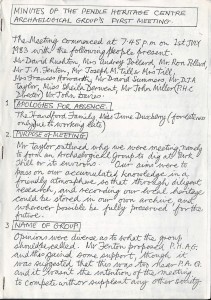 MINUTES OF THE PENDLE HERITAGE CENTRE
ARCHAEOLOGICAL GROUP'S FIRST MEETING.
The Meeting commenced at 7:45 p.m on 1st July
1983 with the following people present.
Mr David Rushton, Mrs Audrey Pollard, Mr Ron Pollard,
Mr T.A. Fenton, Mr Joseph M. Tilles, Mrs Tilles
Mrs Frances Howarth, Mr David Summers, Mr D.I.A
Taylor, Miss Sheila Derwent, Mr John Miller (P.H.C
Director) Mr John Davies
1 APOLOGIES FOR ABSENCE.
The Handford Family, Miss June Duckery (
only due to working late)
2 PURPOSE OF MEETING
Mr Taylor outlined why we were meeting, namely
to form an Archaeological Group to dig at Park
Hill on its environs. "Our aims were to
pass on our accumulated knowledge in a
friendly atmosphere, so that through diligent
research, and recording our world heritage
could be stored in our own archive, and
wherever possible be fully preserved for the
future.
3 NAME OF GROUP
Opinions were diverse, as to what the group
should be called. Mr Fenton proposed P.H.A.G.
and this gained some support, though it
was suggested that this was for the P.A.G.
and it wasn't the intention of the meeting
to compete with or supplant any other society.